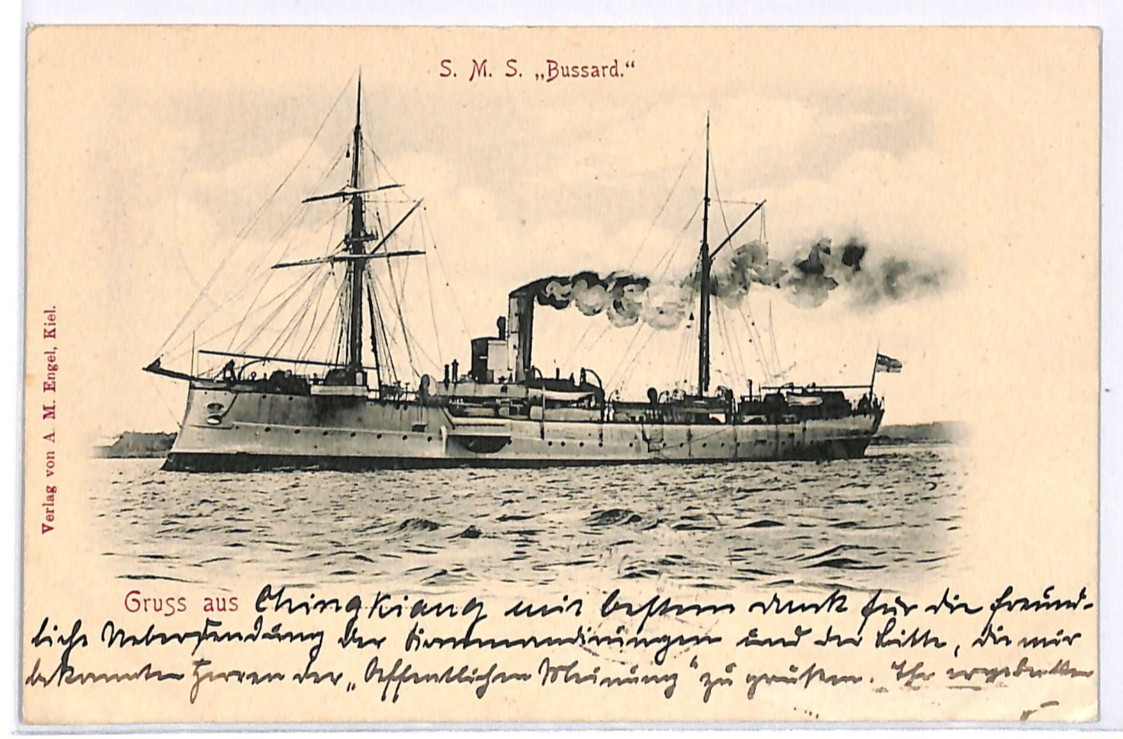 S. M. S. „Bussard.“
Verlag von A. M. Engel, Kiel.
Gruss aus Chingkiang mit bestem Dank für die freund-
liche Uebersendung der Kommandirungen und der Bitte, die mir
bekannten Herren der „Öffentlichen Meinung“ zu grüßen. Ihr ergebenster